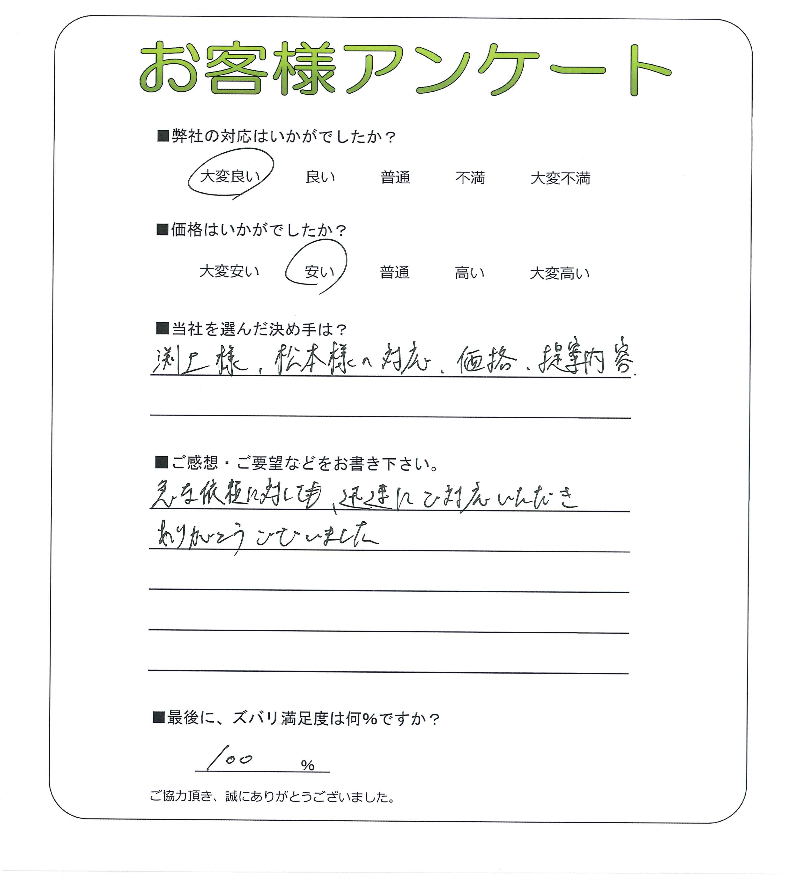 お客様アンケート
■弊社の対応はいかがでしたか？
大変良い 良い 普通 不満 大変不満
■価格はいかがでしたか？
大変安い 安い 普通 高い 大変高い
■当社を選んだ決め手は？
渕上様、松本様の対応、価格、提案内容
■ご感想・ご要望などをお書き下さい。
急な依頼に対しても、迅速にご対応いただき
ありがとうございました
■最後に、ズバリ満足度は何％ですか？
100 ％
ご協力頂き、誠にありがとうございました。